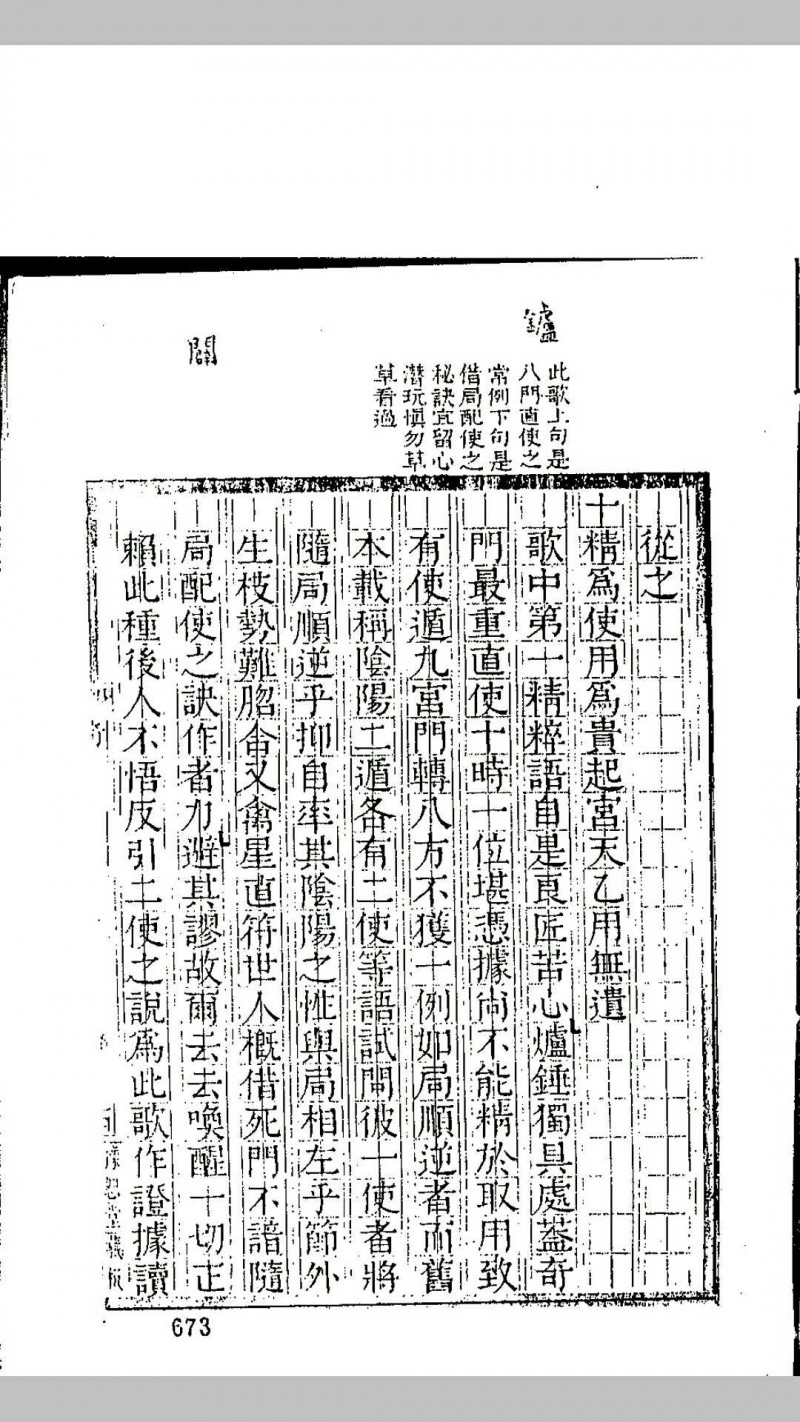 鑪
此歌上句是
八門直使之
常例下句是
借局配使之
秘訣宜留心
潛玩慎勿草
草看過
閗
從之
十精爲使用爲貴起宮天乙用無遺
歌中第一精粹語自是良匠苦心爐錘獨具處蓋奇
門最重直使十時一位堪憑據尚不能精於取用致
有使遁九宮門轉八方不獲一例如局順逆者而舊
本載稱陰陽二遁各有二使等語試閗彼十使者將
隨局順逆乎抑自率其陰陽之性與局相左乎節外
生枝勢難脗合又禽星直符世人概借死門不諳隨
局配使之訣作者力避其謬故爾去去喚醒一切正
賴此種後人不悟反引二使之說爲此歌作證據讀
673